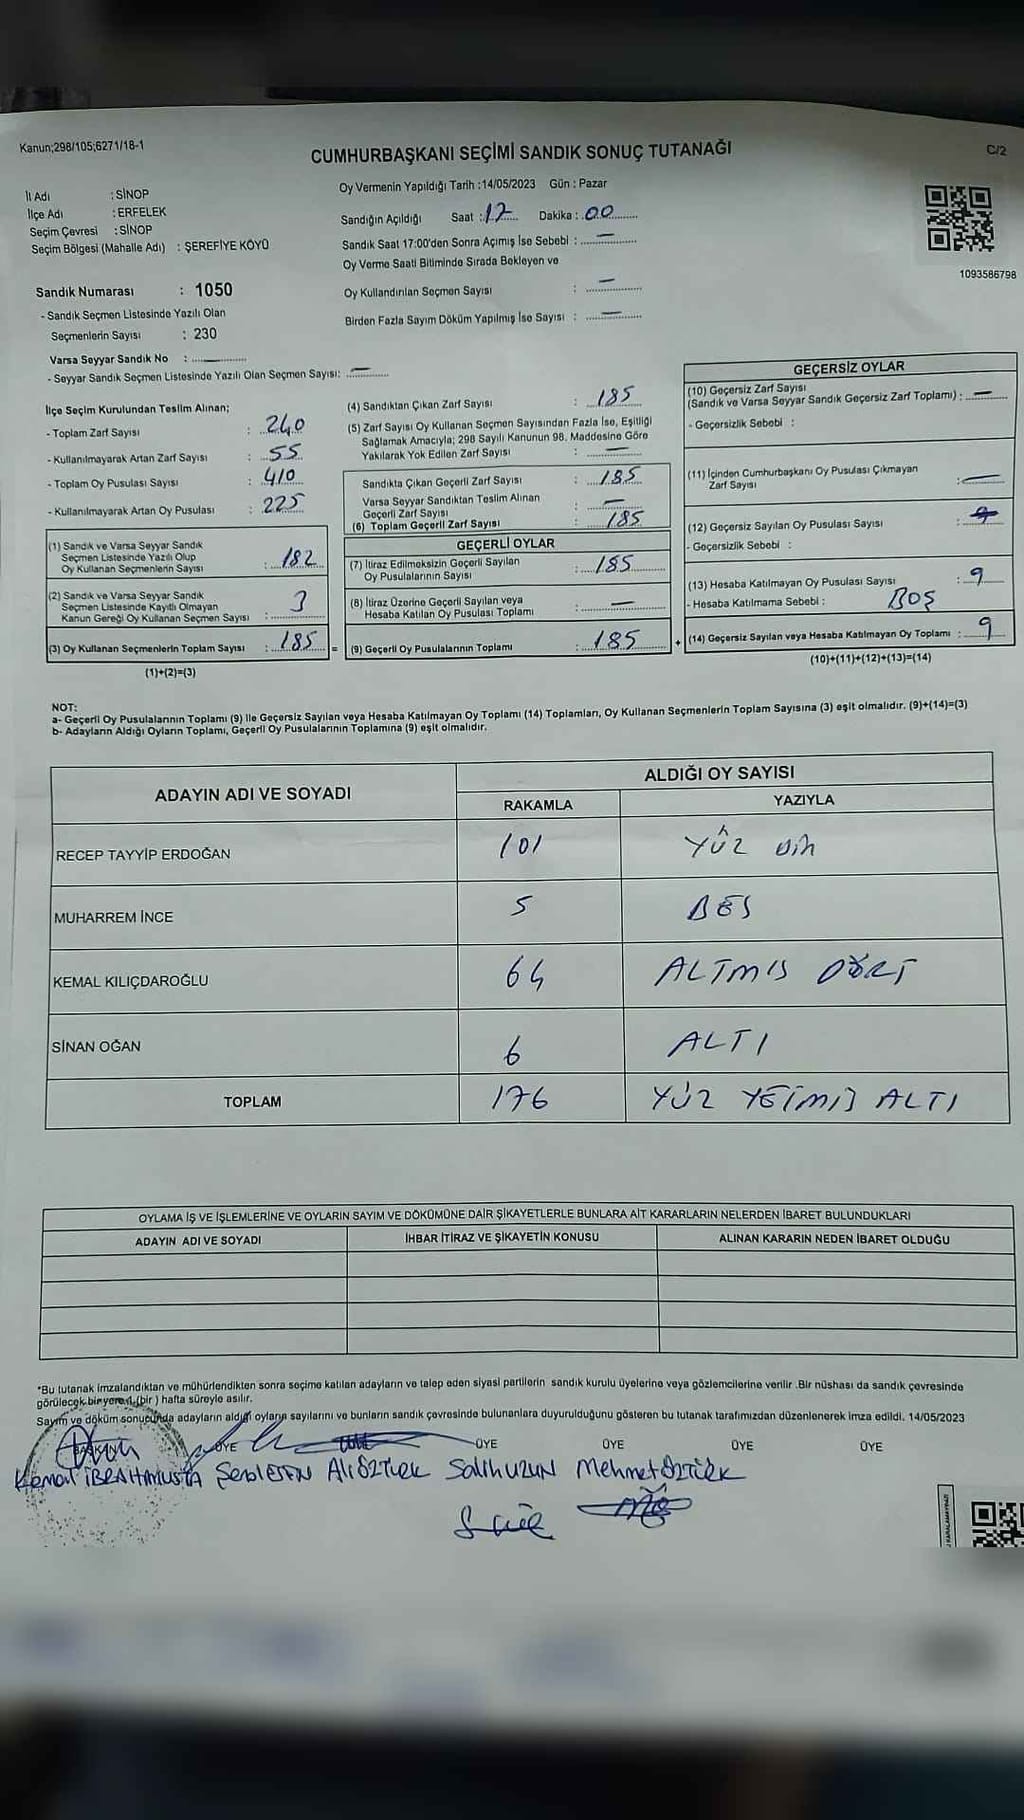 Kanun;298/105;6271/18-1
CUMHURBAŞKANI SEÇİMİ SANDIK SONUÇ TUTANAĞI
C/2
İl Adı : SİNOP
İlçe Adı : ERFELEK
Seçim Çevresi : SİNOP
Seçim Bölgesi (Mahalle Adı) : ŞEREFİYE KÖYÜ
Oy Vermenin Yapıldığı Tarih :14/05/2023 Gün : Pazar
Sandığın Açıldığı Saat : 17 Dakika : 00
Sandık Saat 17:00'den Sonra Açımış İse Sebebi : —
Oy Verme Saati Bitiminde Sırada Bekleyen ve
Oy Kullandırılan Seçmen Sayısı : —
Birden Fazla Sayım Döküm Yapılmış İse Sayısı : —
1093586798
Sandık Numarası : 1050
- Sandık Seçmen Listesinde Yazılı Olan
Seçmenlerin Sayısı : 230
Varsa Seyyar Sandık No :
- Seyyar Sandık Seçmen Listesinde Yazılı Olan Seçmen Sayısı: —
İlçe Seçim Kurulundan Teslim Alınan;
- Toplam Zarf Sayısı : 240
- Kullanılmayarak Artan Zarf Sayısı : 55
- Toplam Oy Pusulası Sayısı : 410
- Kullanılmayarak Artan Oy Pusulası : 225
(1) Sandık ve Varsa Seyyar Sandık
Seçmen Listesinde Yazılı Olup
Oy Kullanan Seçmenlerin Sayısı : 182
(2) Sandık ve Varsa Seyyar Sandık
Seçmen Listesinde Kayıtlı Olmayan
Kanun Gereği Oy Kullanan Seçmen Sayısı : 3
(3) Oy Kullanan Seçmenlerin Toplam Sayısı : 185 =
(1)+(2)=(3)
(4) Sandıktan Çıkan Zarf Sayısı : 185
(5) Zarf Sayısı Oy Kullanan Seçmen Sayısından Fazla İse, Eşitliği
Sağlamak Amacıyla; 298 Sayılı Kanunun 98. Maddesine Göre
Yakılarak Yok Edilen Zarf Sayısı : —
Sandıkta Çıkan Geçerli Zarf Sayısı : 185
Varsa Seyyar Sandıktan Teslim Alınan
Geçerli Zarf Sayısı : —
(6) Toplam Geçerli Zarf Sayısı : 185
GEÇERLİ OYLAR
(7) İtiraz Edilmeksizin Geçerli Sayılan
Oy Pusulalarının Sayısı : 185
(8) İtiraz Üzerine Geçerli Sayılan veya
Hesaba Katılan Oy Pusulası Toplamı : —
(9) Geçerli Oy Pusulalarının Toplamı : 185 +
GEÇERSİZ OYLAR
(10) Geçersiz Zarf Sayısı
(Sandık ve Varsa Seyyar Sandık Geçersiz Zarf Toplamı) : —
- Geçersizlik Sebebi :
(11) İçinden Cumhurbaşkanı Oy Pusulası Çıkmayan
Zarf Sayısı : —
(12) Geçersiz Sayılan Oy Pusulası Sayısı :
- Geçersizlik Sebebi :
(13) Hesaba Katılmayan Oy Pusulası Sayısı : 9
- Hesaba Katılmama Sebebi : BOŞ
(14) Geçersiz Sayılan veya Hesaba Katılmayan Oy Toplamı : 9
(10)+(11)+(12)+(13)=(14)
NOT:
a- Geçerli Oy Pusulalarının Toplamı (9) ile Geçersiz Sayılan veya Hesaba Katılmayan Oy Toplamı (14) Toplamları, Oy Kullanan Seçmenlerin Toplam Sayısına (3) eşit olmalıdır. (9)+(14)=(3)
b- Adayların Aldığı Oyların Toplamı, Geçerli Oy Pusulalarının Toplamına (9) eşit olmalıdır.
ADAYIN ADI VE SOYADI
ALDIĞI OY SAYISI
RAKAMLA YAZIYLA
RECEP TAYYİP ERDOĞAN 101 YÜZ BİR
MUHARREM İNCE 5 BEŞ
KEMAL KILIÇDAROĞLU 64 ALTMIŞ DÖRT
SİNAN OĞAN 6 ALTI
TOPLAM 176 YÜZ YETMİŞ ALTI
OYLAMA İŞ VE İŞLEMLERİNE VE OYLARIN SAYIM VE DÖKÜMÜNE DAİR ŞİKAYETLERLE BUNLARA AİT KARARLARIN NELERDEN İBARET BULUNDUKLARI
ADAYIN ADI VE SOYADI İHBAR İTİRAZ VE ŞİKAYETİN KONUSU ALINAN KARARIN NEDEN İBARET OLDUĞU
*Bu tutanak imzalandıktan ve mühürlendikten sonra seçime katılan adayların ve talep eden siyasi partilerin sandık kurulu üyelerine veya gözlemcilerine verilir .Bir nüshası da sandık çevresinde
görülecek bir yere 1 (bir ) hafta süreyle asılır.
Sayım ve döküm sonucunda adayların aldığı oyların sayılarını ve bunların sandık çevresinde bulunanlara duyurulduğunu gösteren bu tutanak tarafımızdan düzenlenerek imza edildi. 14/05/2023
BAŞKAN ÜYE ÜYE ÜYE ÜYE ÜYE
Kemal İBRAHİMUSTA Ali ÖZTÜRK Salih UZUN Mehmet ÖZTÜRK